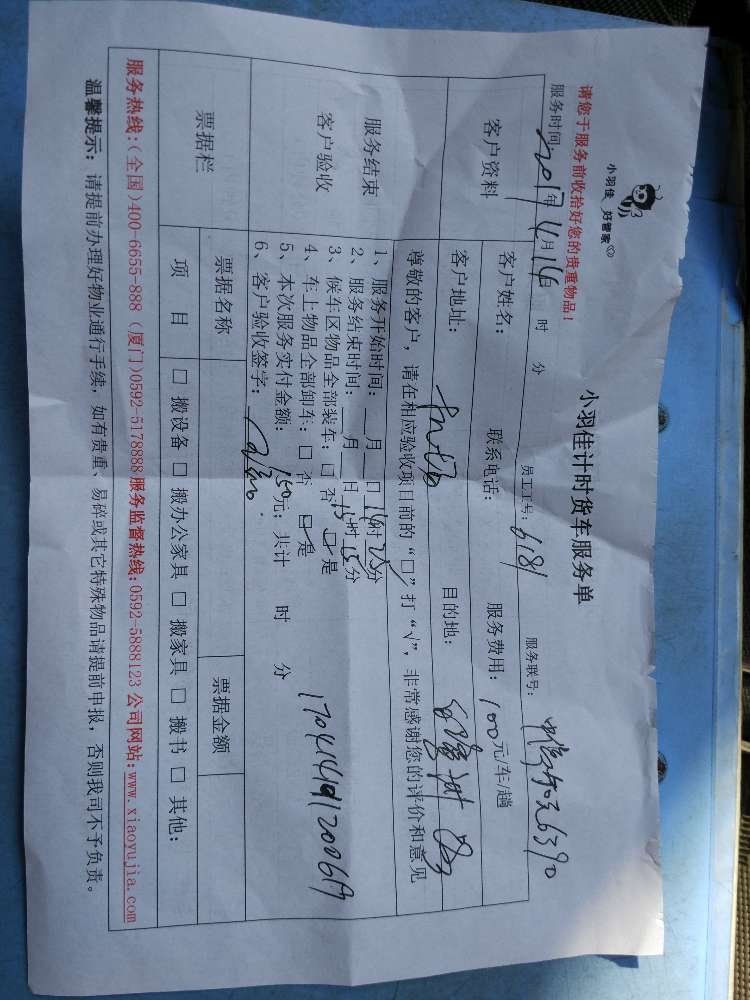 小羽佳 好管家
小羽佳计时货车服务单
请您于服务前收拾好您的贵重物品!
员工工号: 6181
服务联号:
服务时间: 2017年 4月 14日 时 分
客户资料
客户姓名:
联系电话:
服务费用: 100元/车/趟
客户地址:
目的地:
尊敬的客户，请在相应验收项目前的“□”打“√”，非常感谢您的评价和意见
服务结束
客户验收
1、服务开始时间: 月 日 14时25分
2、服务结束时间: 月 日 15时15分
3、候车区物品全部装车: □ 否 □ 是
4、车上物品全部卸车: □ 否 □ 是
5、本次服务实付金额: 150元; 共计 时 分
6、客户验收签字:
票据栏
票据名称
票据金额
项 目
□ 搬设备 □ 搬办公家具 □ 搬家具 □ 搬书 □ 其他:
服务热线:(全国)400-6655-888 (厦门)0592-5178888 服务监督热线:0592-5888123 公司网站:www.xiaoyujia.com
温馨提示: 请提前办理好物业通行手续, 如有贵重、易碎或其它特殊物品请提前申报, 否则我司不予负责。